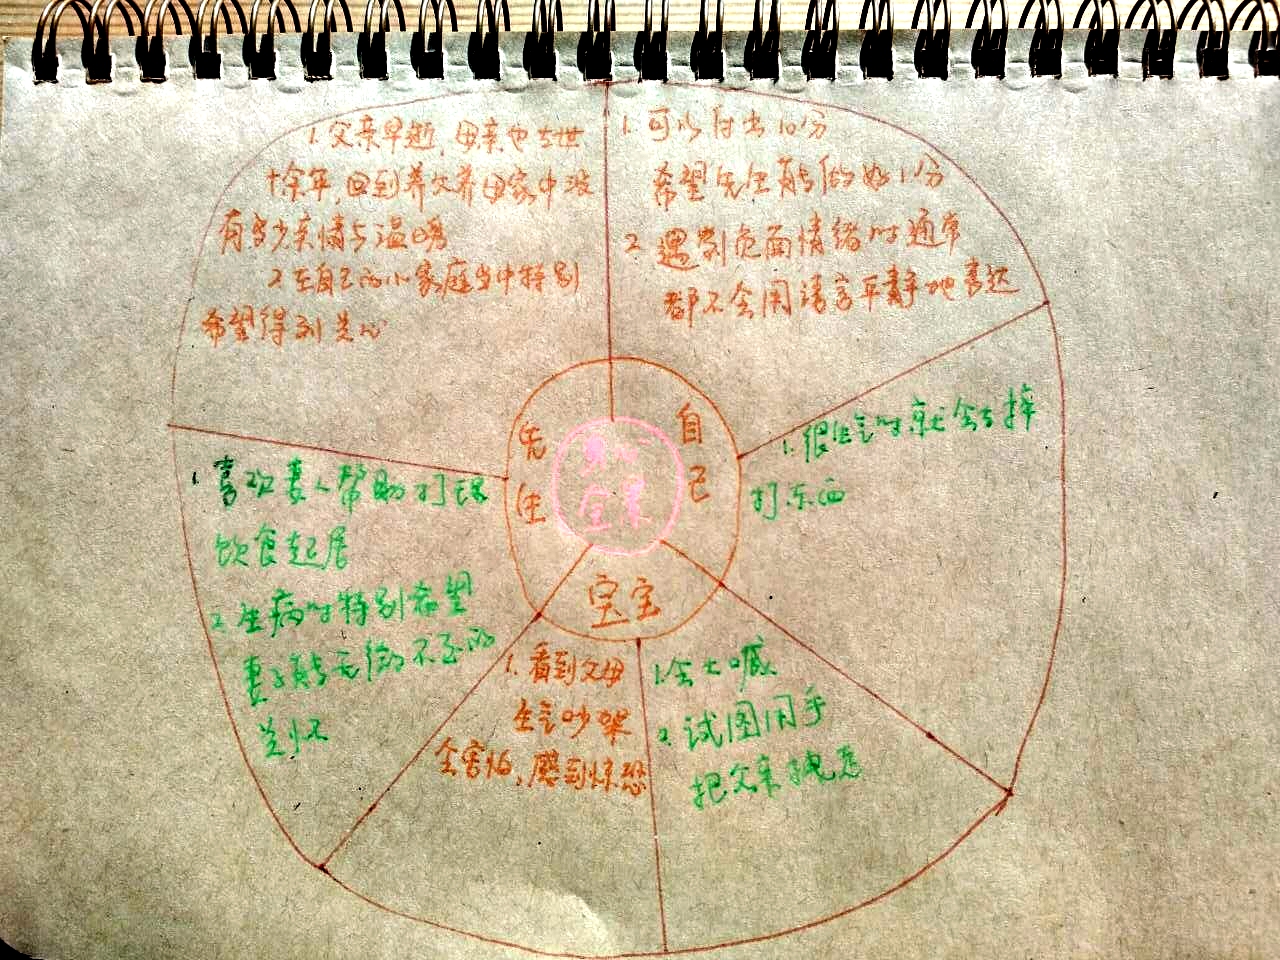 1. 父亲早逝，母亲也去世
十余年，回到养父养母家中没
有多少亲情与温暖
2 在自己的小家庭当中特别
希望得到关心
1. 可以付出10分
希望先生能做如1分
2 遇到负面情绪时通常
都不会用语言平静地表达
1. 很生气时就会去摔
打东西
1. 喜欢妻人帮助打理
饮食起居
2. 生病时特别希望
妻子能无微不至的
关怀
先生
自己
宝宝
1. 看到父母
生气吵架
会害怕，感到惊恐
1. 会大喊
2. 试图用手
把父亲